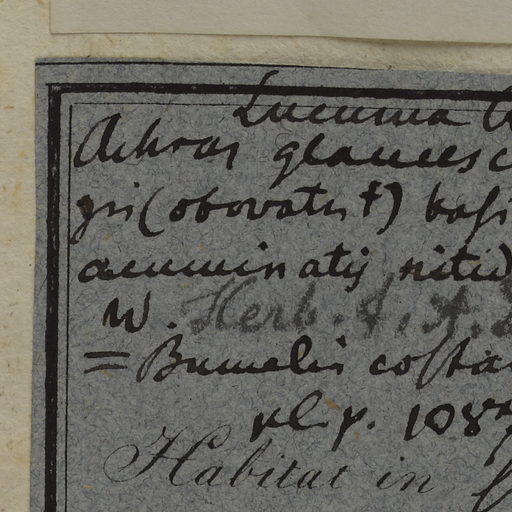 Lucuma
Achras glauces
gii (obovatis †) basi
acuminatis nitid
W. Herb. J. A.
= Bumelis costa
pl. p. 108
Habitat in